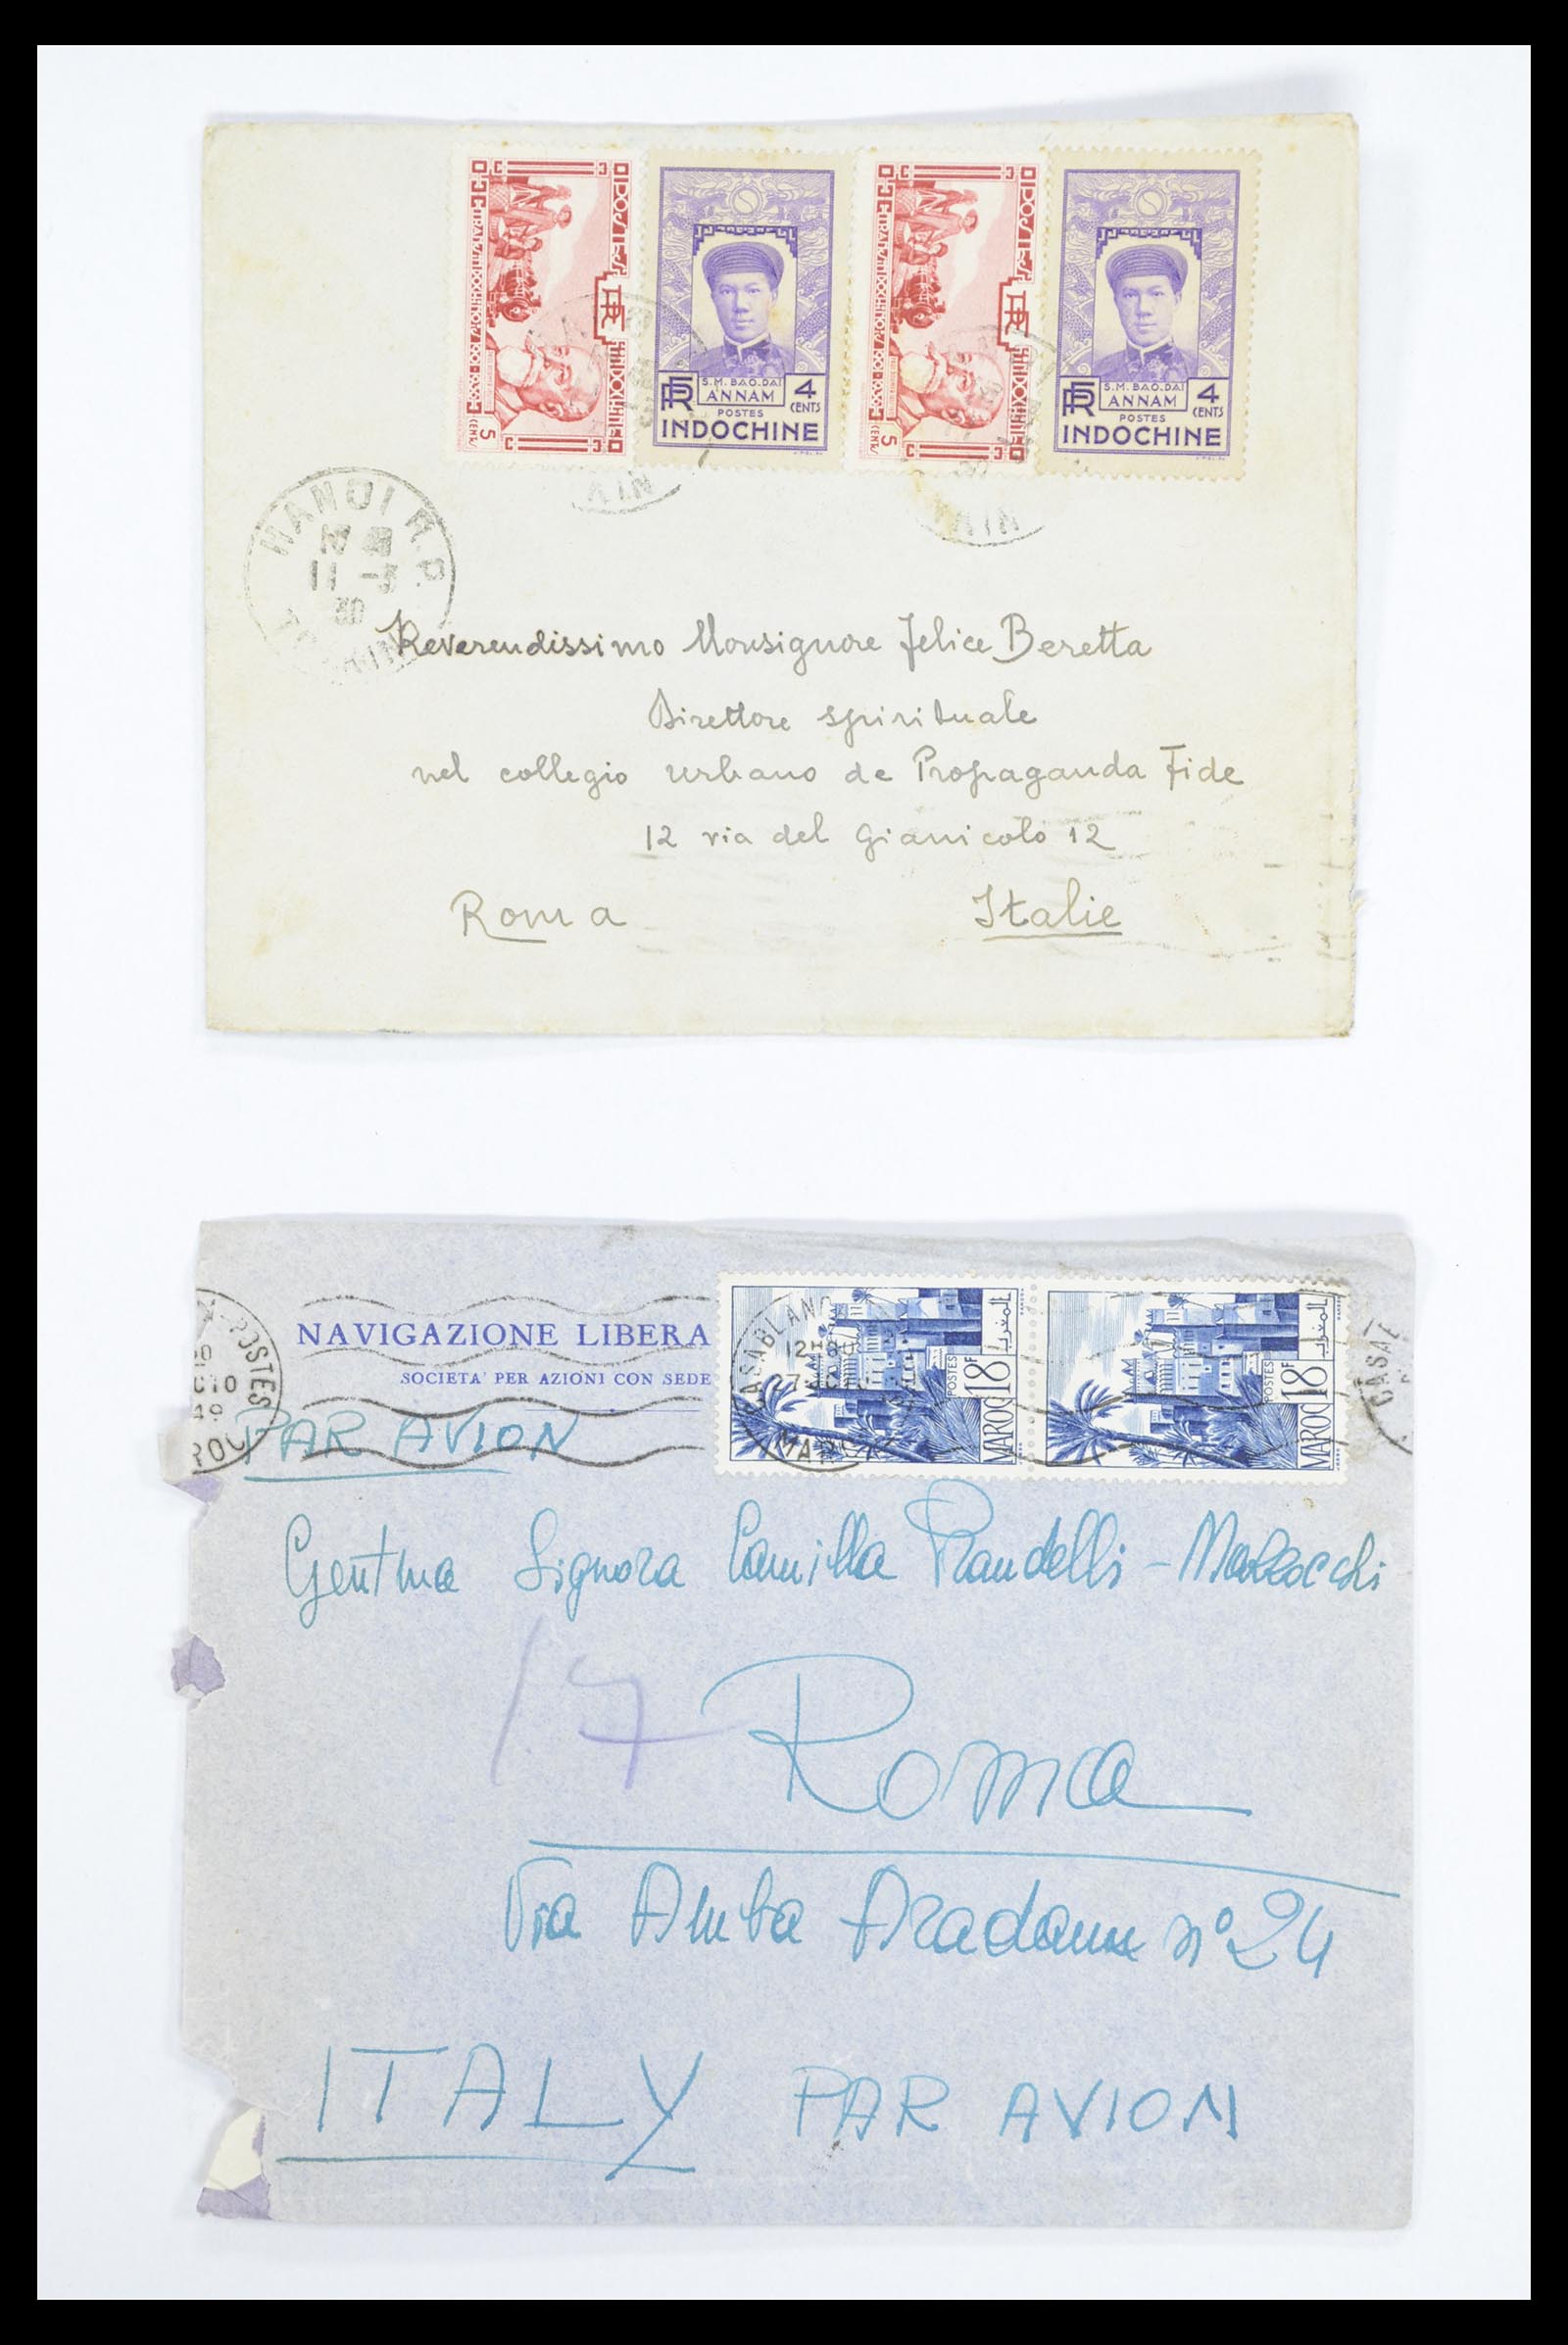 POSTES
RF
INDOCHINE
5
CENTS
S.M. BAO.DAI
ANNAM
4
CENTS
RF
POSTES
INDOCHINE
POSTES
RF
INDOCHINE
5
CENTS
S.M. BAO.DAI
ANNAM
4
CENTS
RF
POSTES
INDOCHINE
HANOI R.P.
11 -3
Reverendissimo Monsignore Felice Beretta
Direttore spirituale
nel collegio urbano de Propaganda Fide
12 via del Gianicolo 12
Roma Italie
NAVIGAZIONE LIBERA
SOCIETA' PER AZIONI CON SEDE
POSTES
PAR AVION
CASABLANCA
MAROC
المغرب
POSTES
MAROC 18F
المغرب
POSTES
MAROC 18F
Gentma Signora Camilla
17
Roma
Via Amba Aradam n° 24
ITALY PAR AVION